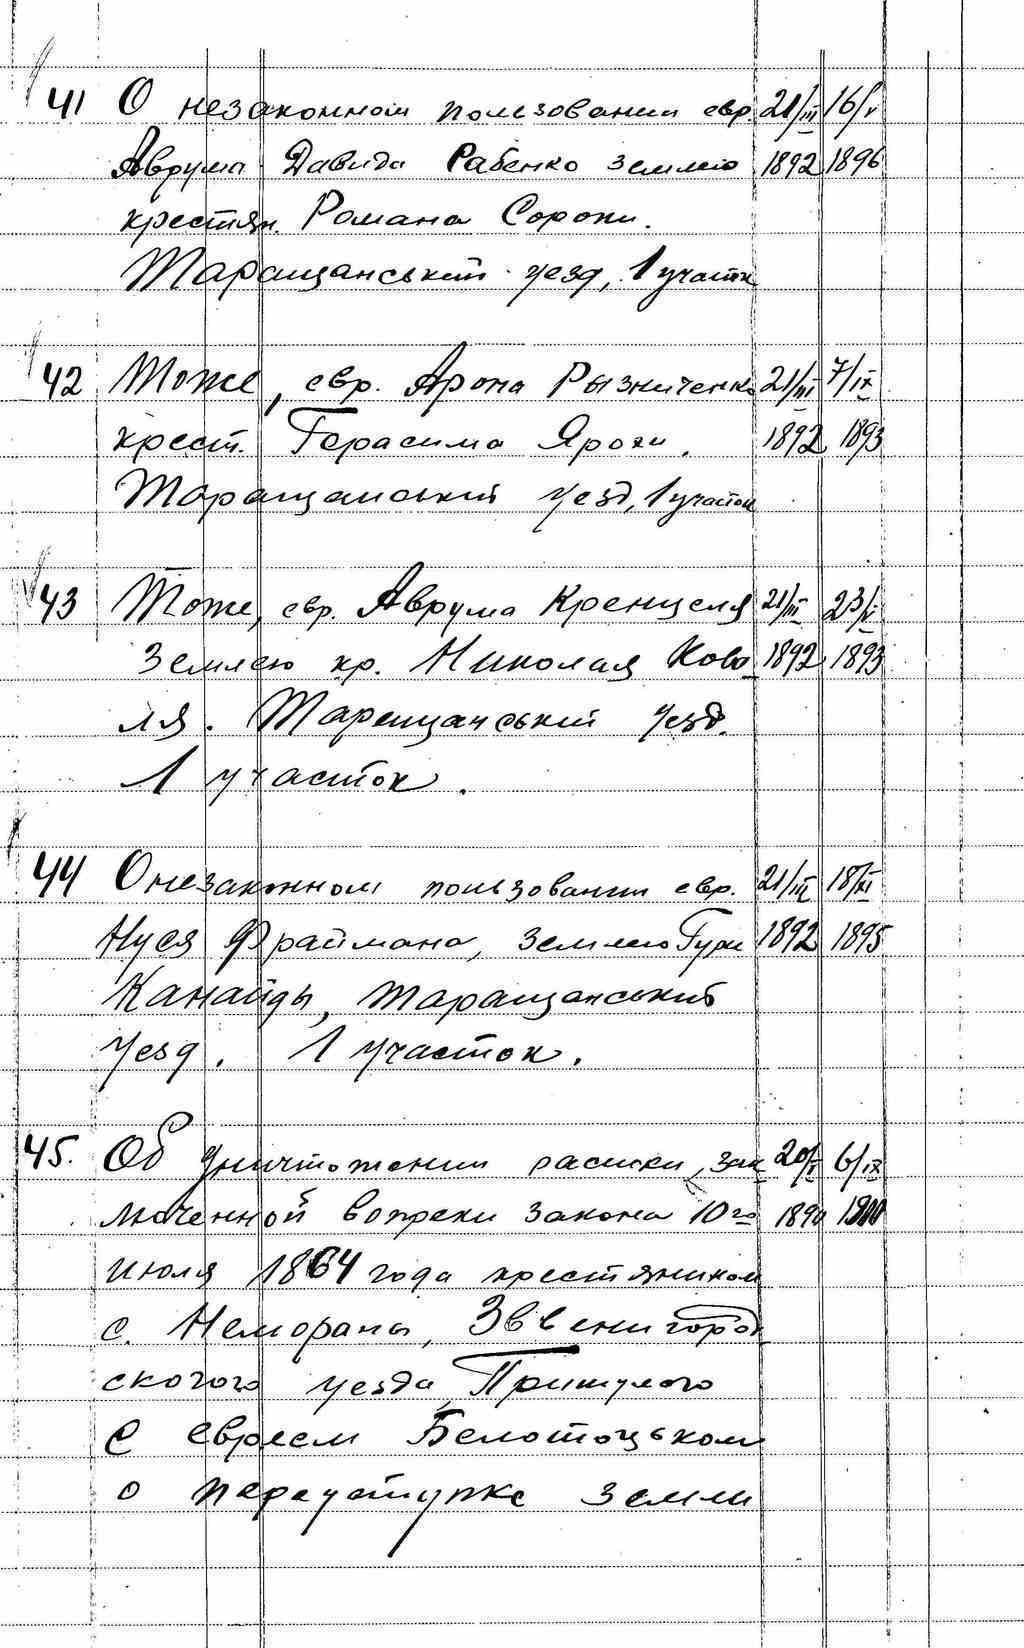 41 О незаконном пользовании евр. 21/III 16/V
Аврума Давида Рабенко землею 1892 1896
крестян. Романа Сороки.
Таращанський уезд, 1 участк
42 Тоже, евр. Арона Рызниченко 21/III 7/IX
крест. Герасима Яроки. 1892 1893
Таращанський уезд, 1 участок
43 Тоже, евр. Аврума Кренцеля 21/III 23/V
Землею кр. Николая Кова 1892 1893
ля. Таращанський уезд.
1 участок.
44 О незаконном пользовании евр. 21/III 18/XI
Нуся Фраймана, землею Гури 1892 1895
Канайды, Таращанський
уезд. 1 участок.
45. Об уничтожении расписки, зак 20/X 6/IX
люченной вопреки закона 10го 1890 1900
июля 1864 года крестяником
с. Неморапы, Звенигород
скогого уезда Притулого
с евреем Белотоцьком
о переуступке земли